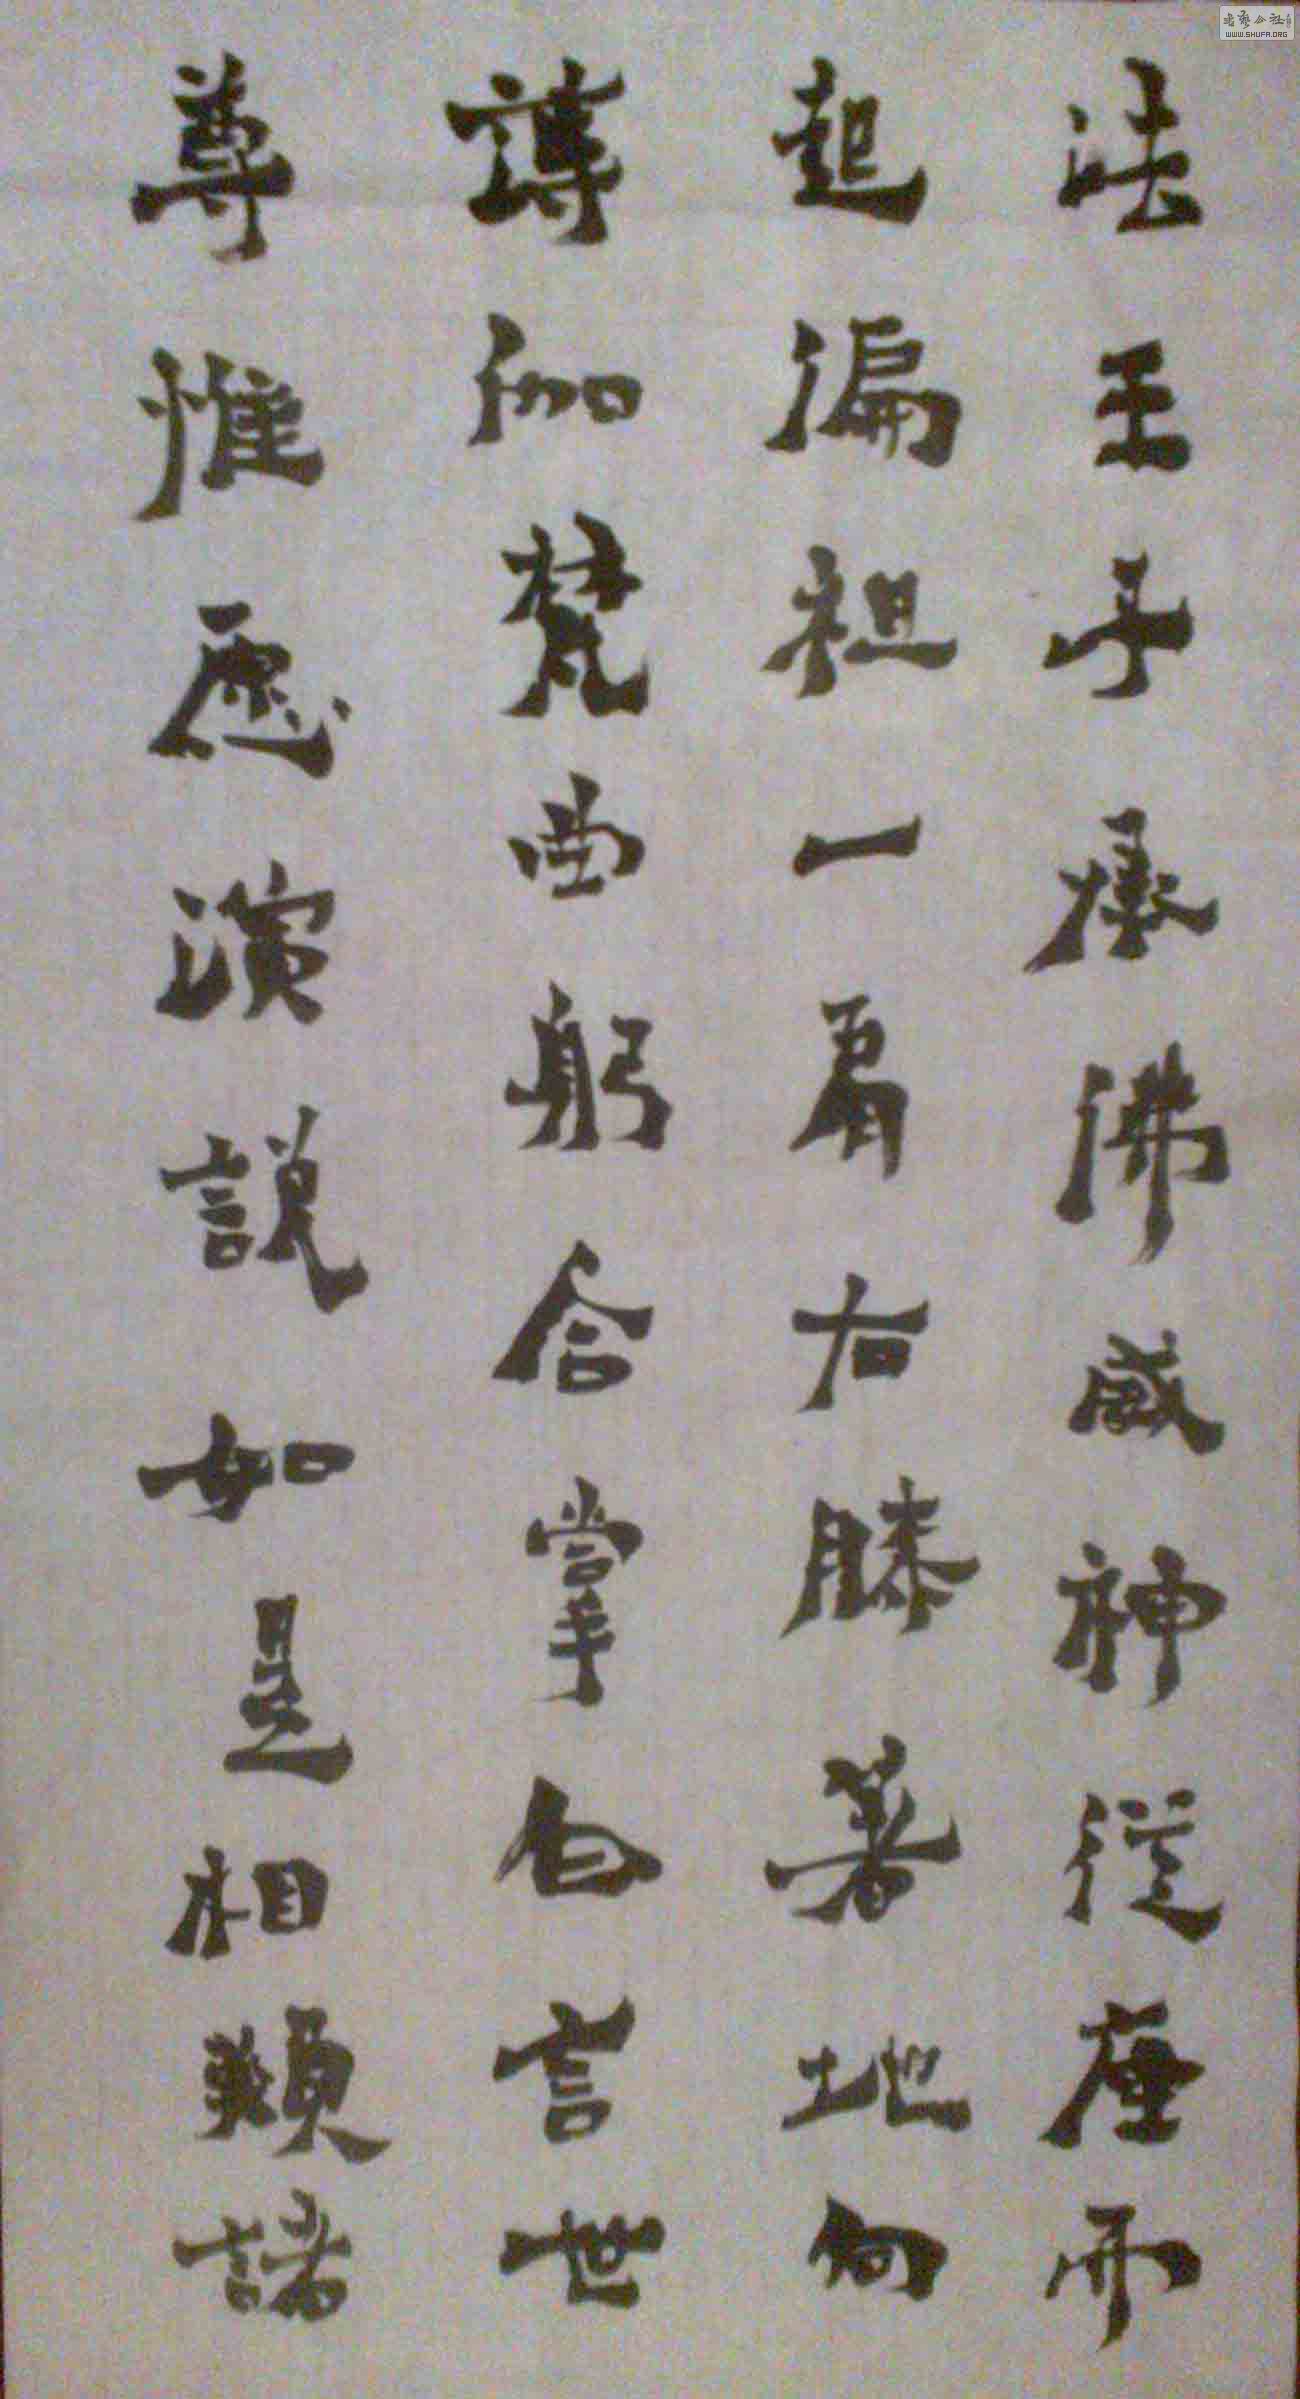 法王子承佛威神從座而
起偏袒一肩右膝著地向
薄伽梵曲躬合掌白言世
尊惟愿演説如是相類諸
WWW.SHUFA.ORG